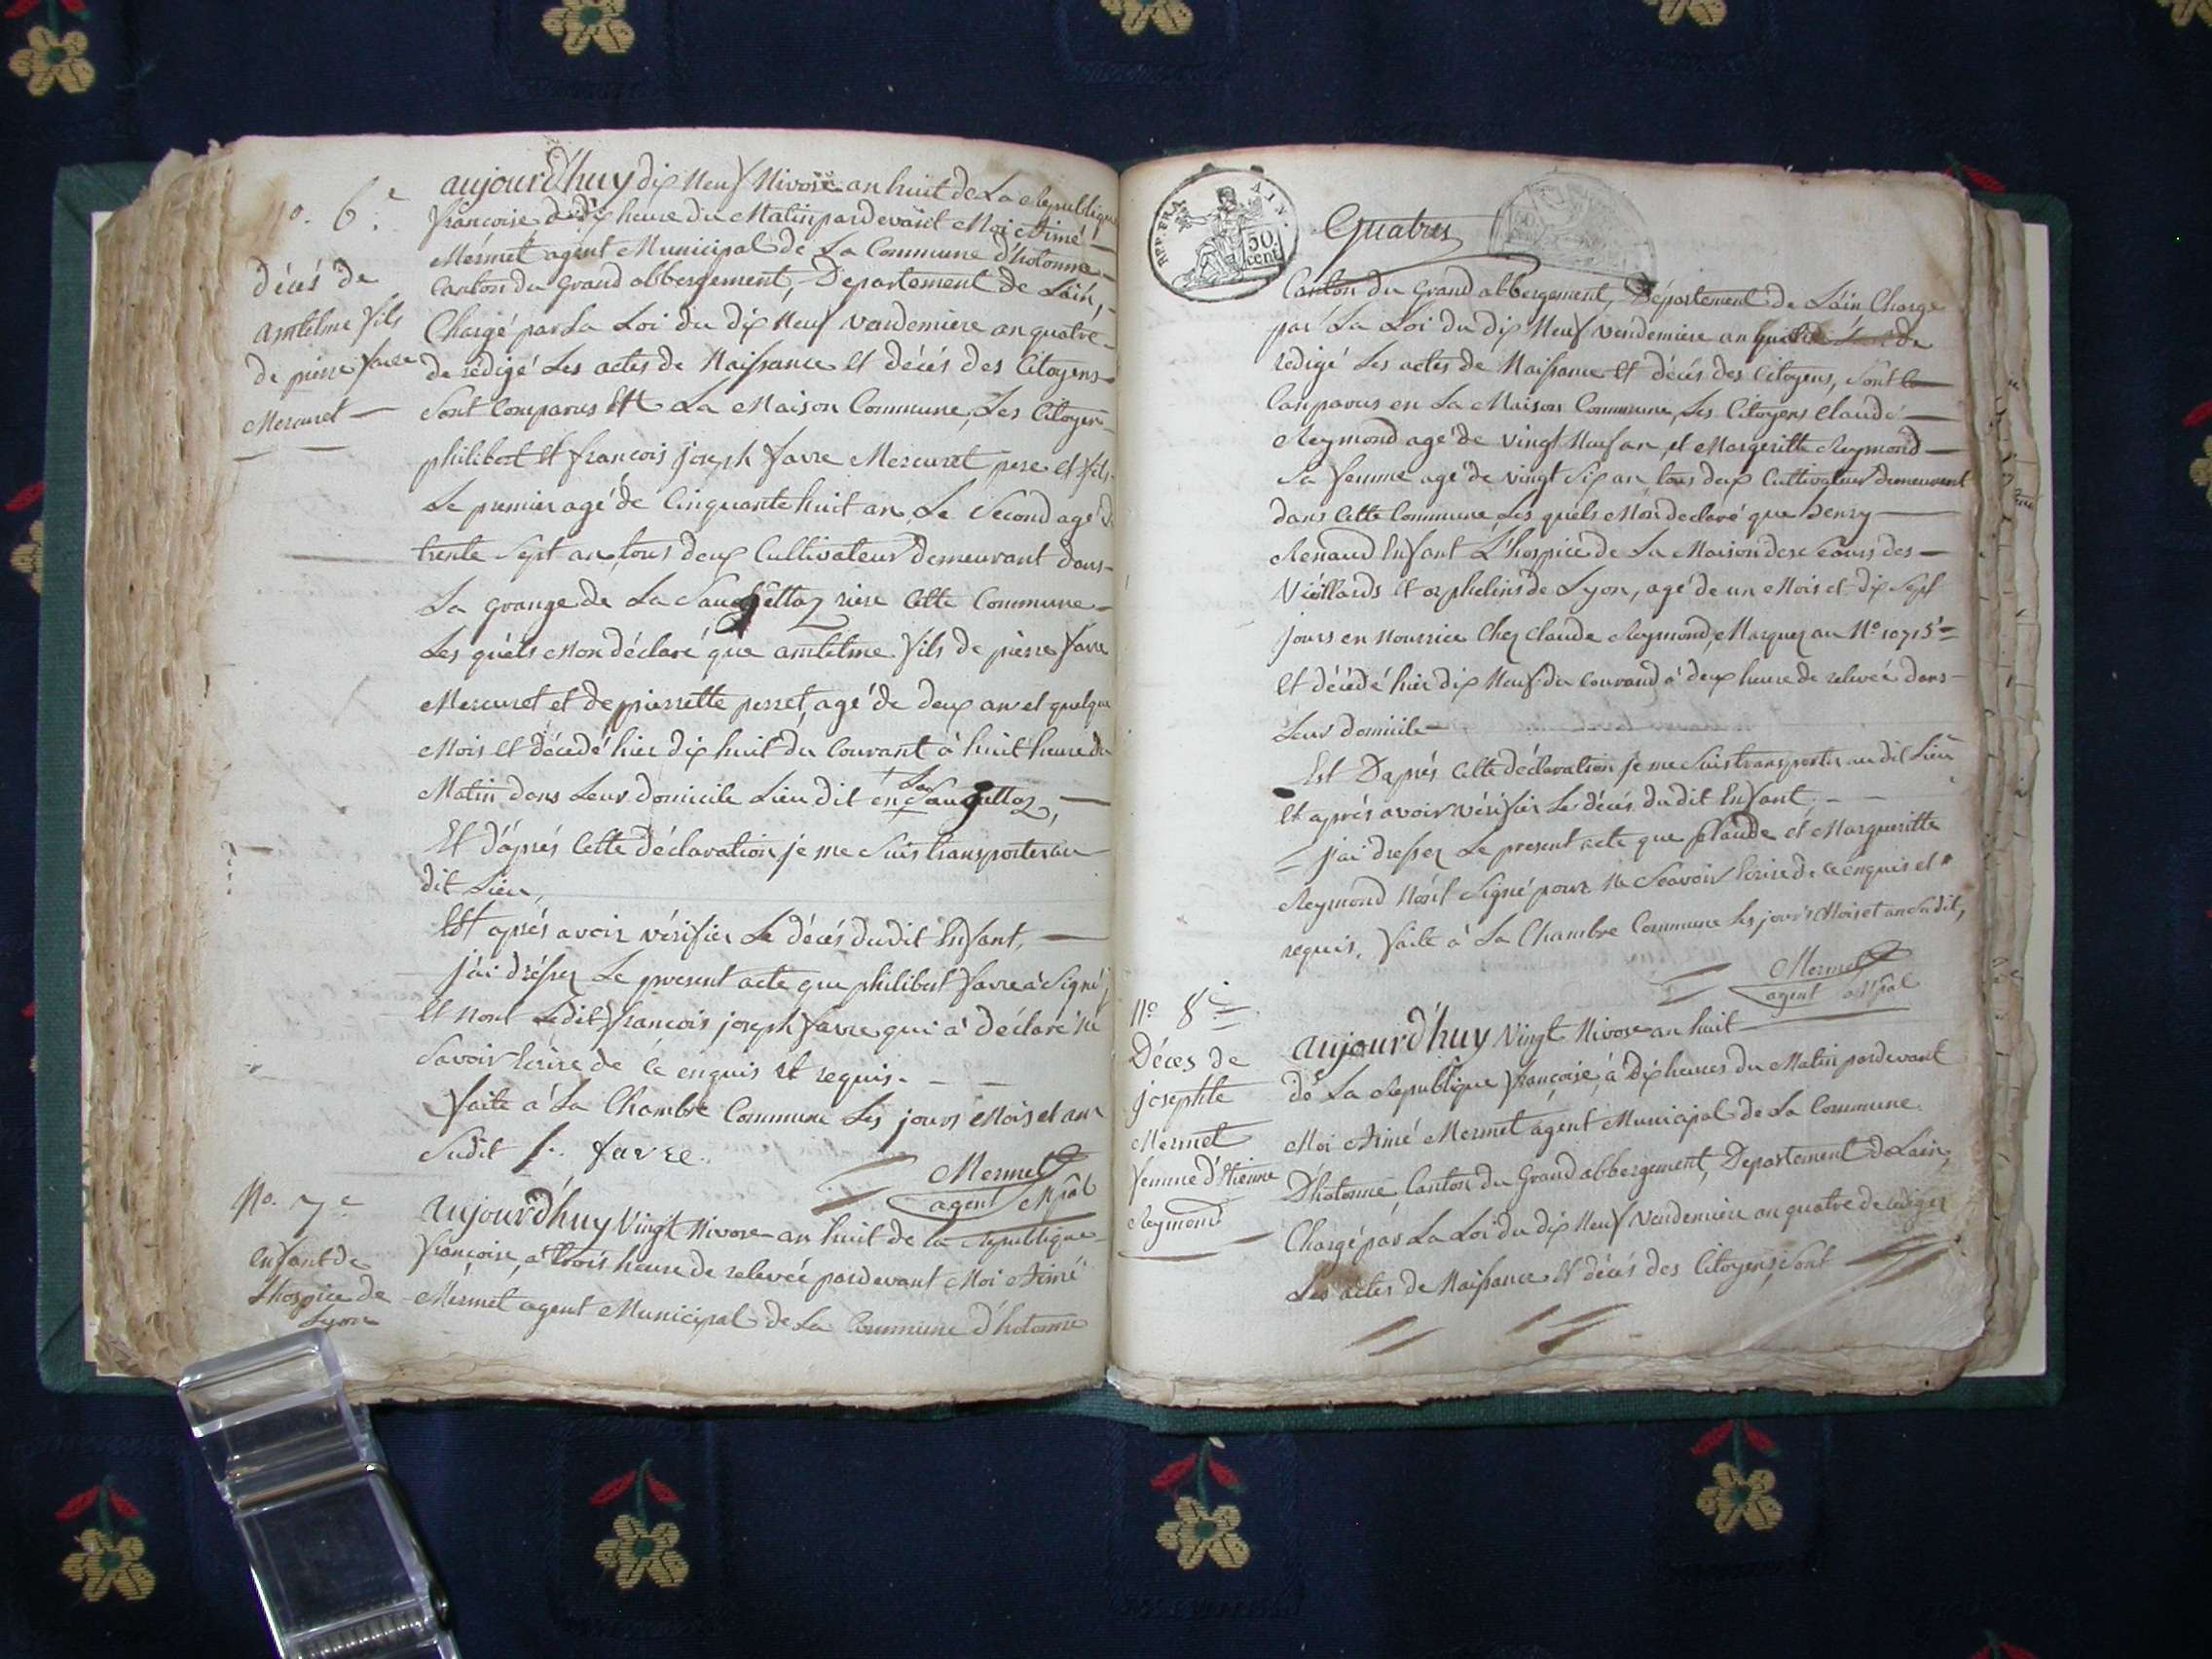 No. 6.e
décés de
amtelme fils
de pierre favre
Mercuret
aujourd'huy dix Neuf Nivose an huit de La Republique
francoise à dix heure du Matin pardevant Moi Aimé
Mermet agent Municipal de La Commune d'hotonne
Canton du Grand abbergement, Departement de Lain,
Chargé par La Loi du dix Neuf vendemiere an quatre
de rédigé Les actes de Naissance et décés des Citoyens
Sont Comparus La Maison Commune, Les Citoyen
philibert et francois joseph favre Mercuret pere et fils
Le premier agé de Cinquante huit an, Le Second agé de
trente Sept an, tous deux Cultivateur demeurant dans
La grange de La rière Cette Commune
Les quels Mon déclaré que amtelme fils de pierre favre
Mercuret et de pierrette perret, agé de deux an et quelque
Mois et décedé hier dix huit du Courant à huit heure du
Matin dans Leur domicile Lieu dit en La
Et d'áprés Cette déclaration je me Suis transporter au
dit Lieu,
Et aprés avoir vérifier Le décés dudit Enfant,
j'ai drésser Le present acte que philibert favre a Signé
et nont Ledit francois joseph favre qui a déclaré né
Savoir Ecrire de Ce enquis et requis.
faite a La Chambre Commune Les jours Mois et an
Sudit f. favre.
Mermet
agent Mpal
No. 7e
Enfant de
Lhospice de
Lyon
aujourd'huy Vingt Nivose an huit de la Republique
françoise, a trois heure de relevée pardevant Moi Aimé
Mérmet agent Municipal de La Commune d'hotonne
REP. FRA
AIN.
50.
cent.
Quatres
Canton du Grand abbergement, Département de Lain Chargé
par La Loi du dix Neuf vendemiere an de
redigé Les actes de Naissance et décés des Citoyens, Sont
Comparus en La Maison Commune, Les Citoyens Claude
Reymond agé de vingt Neuf an, et Margeritte Reymond
Sa femme agé de vingt Six an tous deux Cultivateur demeurent
dans Cette Commune Les quels Mon declaré que henry
Renaud Enfant L'hospice de La Maison des Secours des
Viéillards et orphelins de Lyon, agé de un Mois et dix Sept
jours en nourrice Chez Claude Reymond, Marquez au No 10715
Et décédé hier dix Neuf du Courand à deux heure de relevée dans
Leur domicile
Est Daprés Cette déclaration je me Suis transporter au dit Lieu
Et aprés avoir vérifier Le décés dudit Enfant.
j'ai dresser Le present acte que Claude et Margueritte
Reymond Nont Signé pour Ne Scavoir Ecrire de ce enquis et
requis. faite à La Chambre Commune Les jours Mois et an Sudit,
Mermet
agent Mpal
No 8e
Décés de
josephte
Mermet
femme d'Etienne
Reymond
aujourd'huy Vingt Nivose an huit
de La Republique françoise, à Dix heures du Matin pardevant
Moi Aimé Mermet agent Municipal de La Commune
D'hotonne Canton du Grand abbergement, Departement de Lain,
Chargé par La Loi du dix Neuf vendemiere an quatre de rediger
Les actes de Naissance et décés des Citoyens, Sont